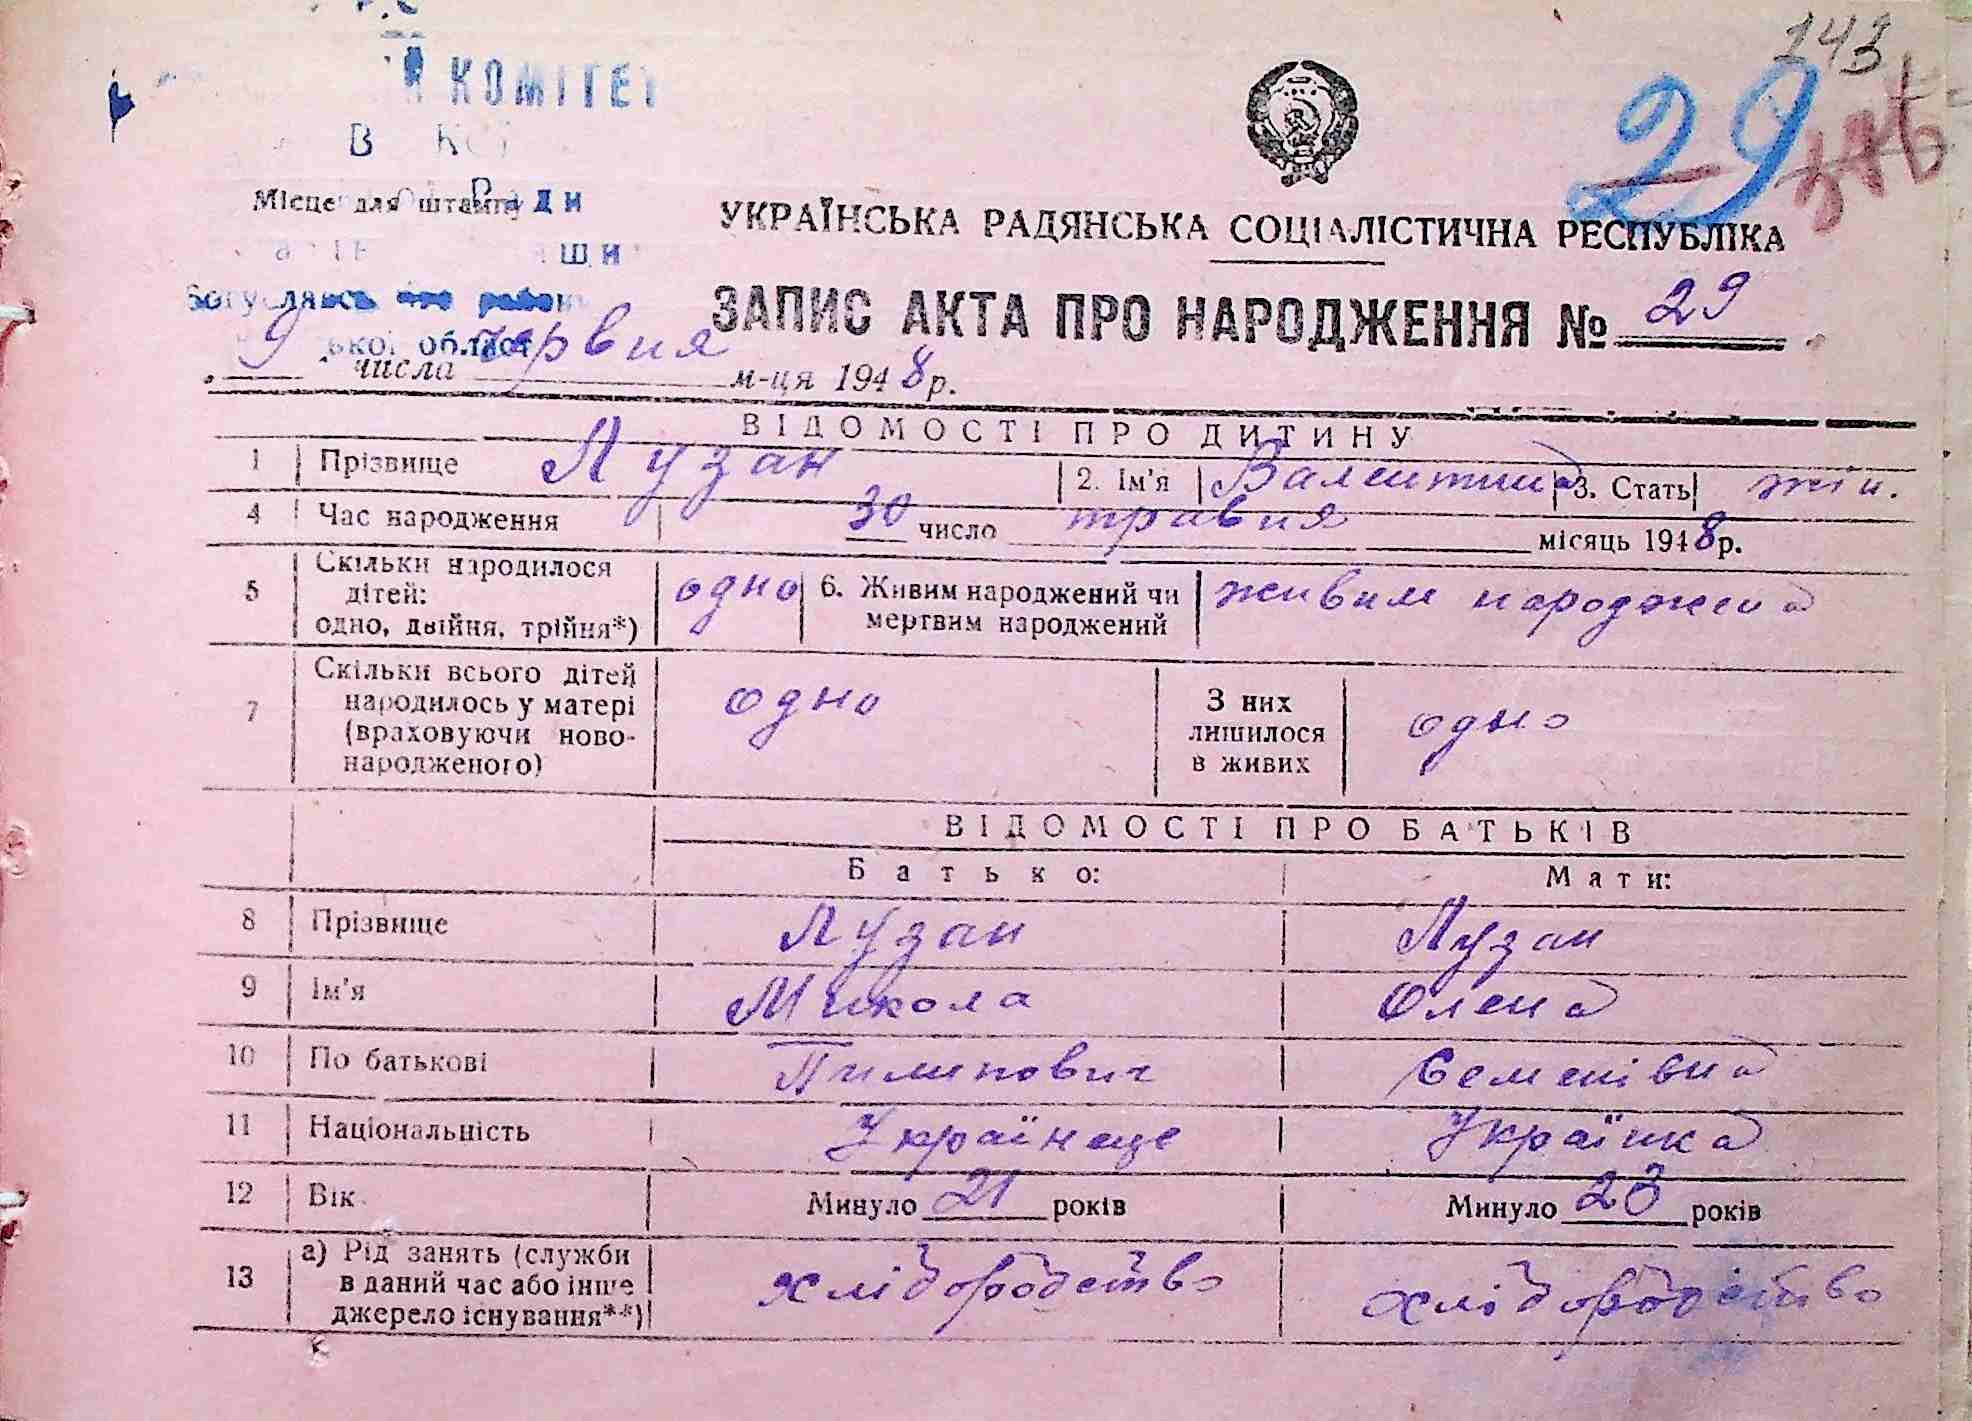 143
29
КОМІТЕТ
Місце для штампу
УКРАЇНСЬКА РАДЯНСЬКА СОЦІАЛІСТИЧНА РЕСПУБЛІКА
ЗАПИС АКТА ПРО НАРОДЖЕННЯ № 29
9 числа червня м-ця 1948 р.
ВІДОМОСТІ ПРО ДИТИНУ
1 Прізвище Лузан 2. Ім'я Валентина 3. Стать жін.
4 Час народження 30 число травня місяць 1948 р.
5 Скільки народилося дітей: одно, двійня, трійня*) одно 6. Живим народжений чи мертвим народжений живим народжена
7 Скільки всього дітей народилось у матері (враховуючи новонародженого) одно З них лишилося в живих одно
ВІДОМОСТІ ПРО БАТЬКІВ
Батько: Мати:
8 Прізвище Лузан Лузан
9 Ім'я Микола Олена
10 По батькові Пилипович Семенівна
11 Національність Українець Українка
12 Вік Минуло 21 років Минуло 23 років
13 а) Рід занять (служби в даний час або інше джерело існування**) хліборобство хліборобство